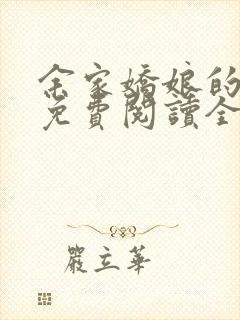 余家嬌娘的
免費閱讀全
嚴立華